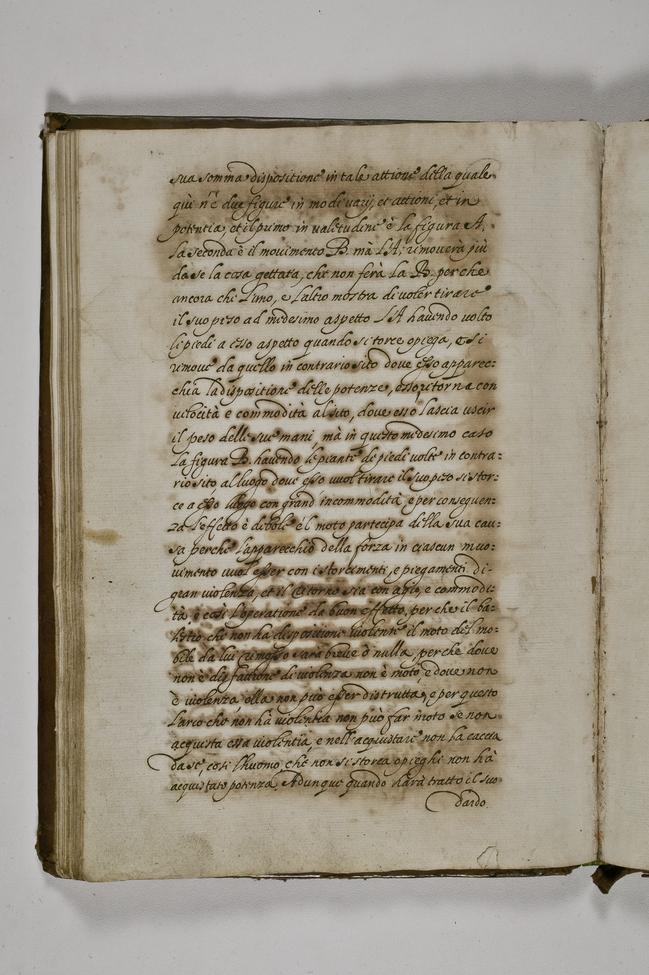 sua somma dispositione in tale attione della quale
qui n'è due figure in modi varij, et attioni, et in
potentia, et il primo in valetudine è la figura A,
la seconda è il movimento B. mà l'A, rimoverà più
da se la cosa gettata, che non ferà la B. perche
ancora che l'uno, e l'altro mostra di voler tirare
il suo peso ad medesimo aspetto l'A havendo volto
li piedi a esso aspetto quando si torce o piega, e si
rimove da quello in contrario sito dove esso apparec:
chia la dispositione delle potenze, esso ritorna con
velocità e commodità al sito, dove esso lascia uscir
il peso delle sue mani, mà in questo medesimo caso
la figura B. havendo le piante de piedi volte in contra:
rio sito al luogo dove esso vuol tirare il suo peso si stor:
ce a esso luogo con grand incommodità, e per conseguen:
za l'effetto è debole e'l moto partecipa della sua cau:
sa perche l'apparecchio della forza in ciascun muo:
vimento vuol esser con istorcimenti, e piegamenti di
gran violenza, et il ritorno sia con agio, e commodi:
tà, e così l'operatione ha buon effetto, perche il ba:
lestro che non ha dispositione violente il moto del mo:
bile da lui rimosso sarà breve ò nulla, perche dove
non è disfattione di violenza non è moto, e dove non
è violenza ella non può esser distrutta, e per questo
l'arco che non hà violentia non può far moto se non
acquista essa violentia, e nell'acquistare non ha caccia
da se, così l'huomo che non si storca o pieghi non hà
acquistato potenza, Adunque quando harà tratto il suo
dardo